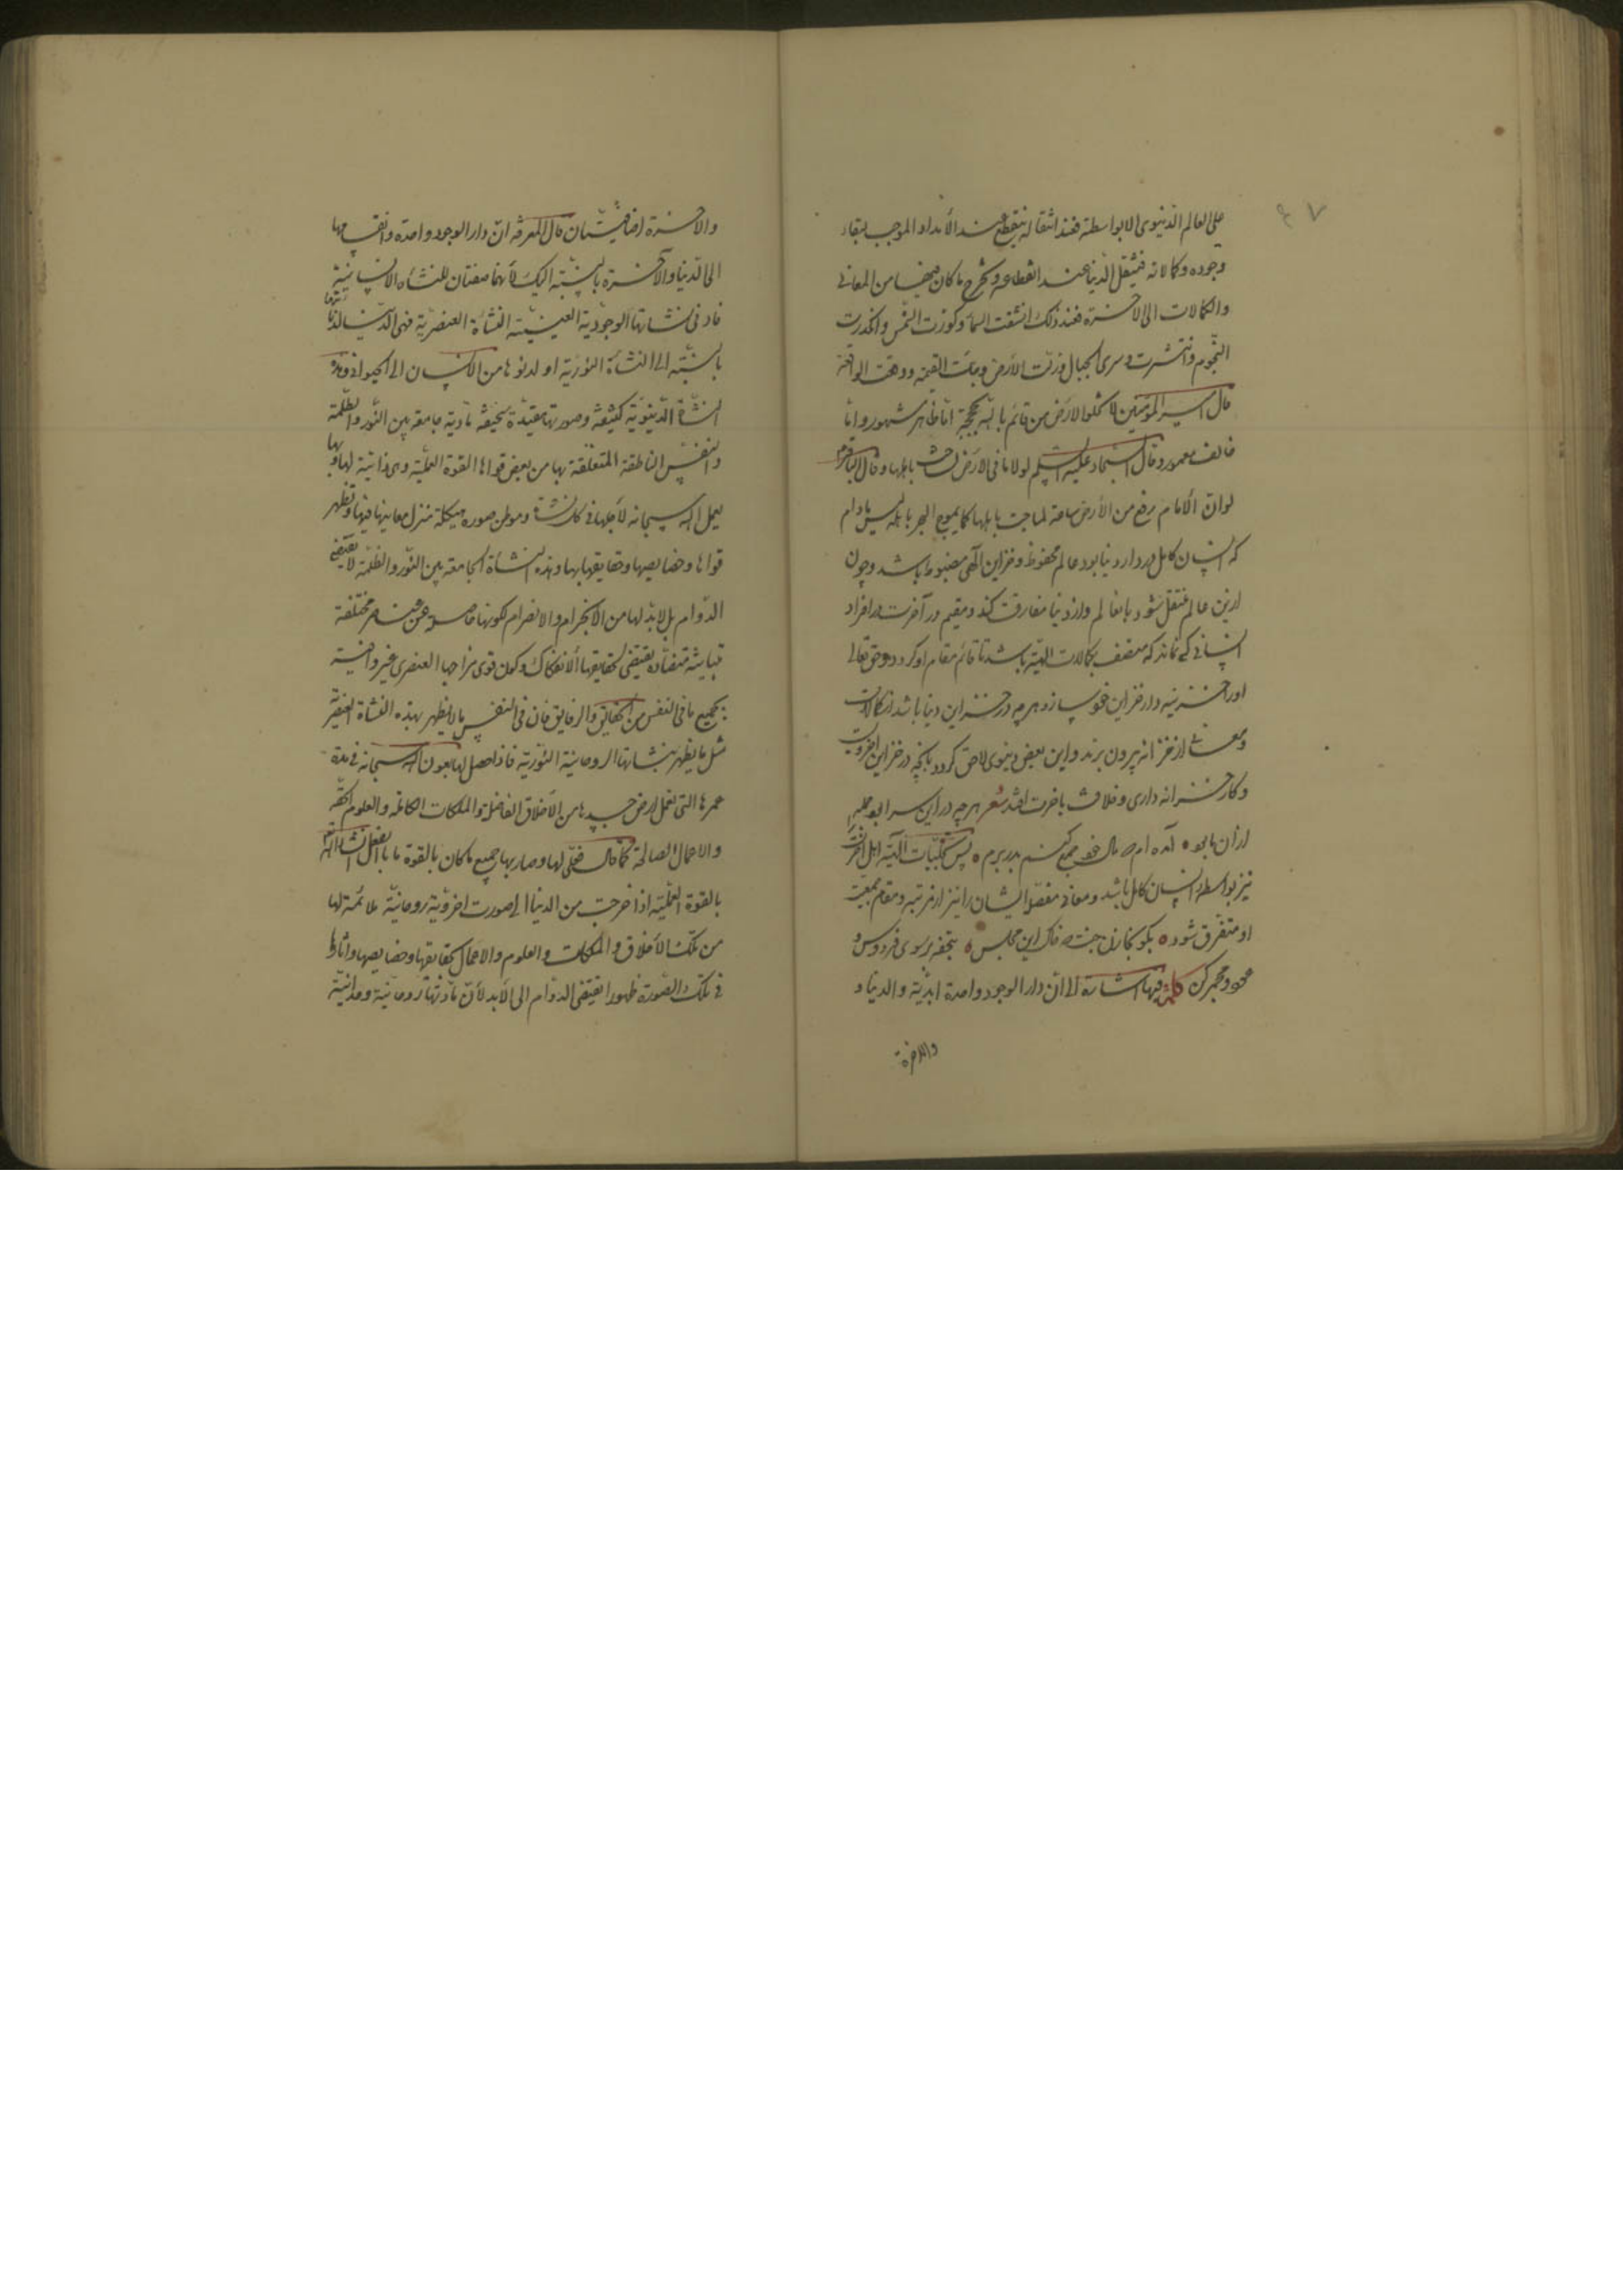 ۴۷
علی العالم الدنیوی الا بواسطة فعند انتقاله ینقطع عنه الأمداد الموجب لبقاء
وجوده وکمالاته فینتقل الدنیا عند انقطاعه و یخرج ما کان فیها من المعانی
والکمالات الی الاخرة فعند ذلک انشقت السماء وکورت الشمس وانکدرت
النجوم وانتثرت وسری الجبال وزلزلت الأرض وجاءت القیمة ووقعت الواقعة
قال امیر المؤمنین لا تخلوا الارض من قائم بالله بحجة اما ظاهر مشهور واما
خائف مغمور وقال السجاد علیه السلم لولا ما فی الارض لساخت باهلها وقال الباقر
لو ان الامام رفع من الأرض ساعة لماجت باهلها کما یموج البحر باهله پس مادام
که انسان کامل در دار دنیا بود عالم محفوظ و خزاین الهی مضبوط باشد و چون
ازین عالم منتقل شود بانعالم و از دنیا مفارقت کند و مقیم در آخرت و در افراد
انسانی کسی نماند که متصف بکمالات الهیه باشد تا قائم مقام او کردد و حق تعالی
اورا خزینه دار خزاین خود سازد هر چه در خزاین دنیا باشد از کمالات
و معانی از خزانه بیرون برند و این بعض دنیوی لاحق کردد بانچه در خزاین اخرویست
و کار خزانه داری و خلافت باخرت افتد شعر هرچه در این سرا بود
از ان ما بود آمده ام که مال خود جمع کنم بدر برم پس تجلیات الهیه اهل آخرت
نیز بواسطه انسان کامل باشد و معانی مفصل ایشان را نیز از مرتبه و مقام جمعیت
او متفرق شود بکو بخازن جنت که خاک این مجلس بتحفه بر سوی فردوس و
عود و مجمر کن کلمة فیها اشارة الی ان دار الوجود واحدة ابدیة والدنیا و
والاخرة
والاخرة اضافیتان قال المعرفه ان دار الوجود واحدة وانقسامها
الی الدنیا والآخرة بالنسبة الیک لأنهما صفتان للنشأة الانسانیة
فادنی نشاتها الوجودیة العینیة النشأة العنصریة فهی الدنیا لدنائتها
بالنسبة الی النشأة النوریة او لدنوها من الانسان الی الحیوان وهذه
النشأة الدنیویة کثیفة وصورتها مقیدة سخیفة مادیة جامعة بین النور والظلمة
والنفس الناطقة المتعلقة بها من بعض قواها القوة العملیة وهی ذاتیة لها وبها
یعمل الله سبحانه لأجلها فی کل نشأة وموطن صورة هیکلة تنزل معانیها فیها وتظهر
قواها وخصایصها وحقایقها بها وهذه النشأة الجامعة بین النور والظلمة لا یقتضی
الدوام بل لابد لها من الانخرام والانصرام لکونها حاصلة عن عناصر مختلفة
متباینة متضادة یقتضی لحقایقها الانفکاک وکون قوی مزاجها العنصری غیر وافیة
بجمیع ما فی النفس من الحقایق والرقایق فان فی النفس ما لا یظهر بهذه النشأة العنصریة
مثل ما یظهر بنشاتها الروحانیة النوریة فاذا حصل لها بعون الله سبحانه فی مدة
عمرها التی تعمل ارض جسدها من الأخلاق الفاضلة والملکات الکاملة والعلوم الحقه
والاعمال الصالحة کما قال فحلی لها وصار بها جمیع ما کان بالقوة ما بالفعل انشأ الله
بالقوة العملیة اذا خرجت من الدنیا الی صورت اخرویة روحانیة ملائمة لها
من تلک الأخلاق والملکات والعلوم والاعمال بحقایقها وخصایصها وآثارها
فی تلک الصورة ظهورا یقتضی الدوام الی الأبد لأن مادتها روحانیة وحدانیة